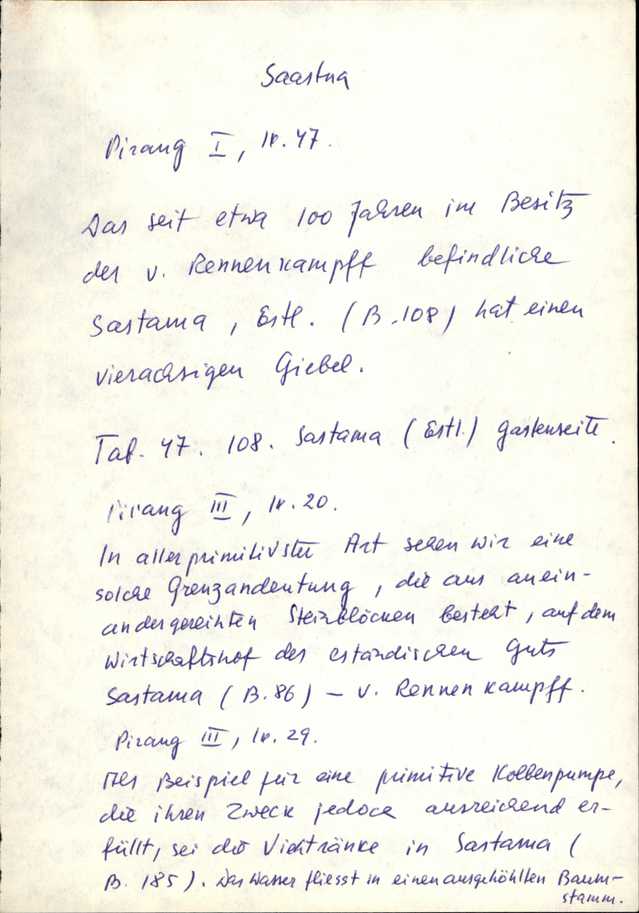 Saastna
Pirang I, lk. 47.
Das seit etwa 100 Jahren im Besitz
der v. Rennenkampff befindliche
Sastama, Estl. (B. 108) hat einen
vierachsigen Giebel.
Taf. 47. 108. Sastama (Estl.) Gartenseite.
Pirang III, lk. 20.
In allerprimitivster Art sehen wir eine
solche Grenzandeutung, die aus anein-
andergereihten Steinblöcken besteht, auf dem
Wirtschaftshof des estländischen Guts
Sastama (B. 86) – v. Rennenkampff.
Pirang III, lk. 29.
Als Beispiel für eine primitive Kolbenpumpe,
die ihren Zweck jedoch ausreichend er-
füllt, sei die Viehtränke in Sastama (
B. 185). Das Wasser fliesst in einen ausgehöhlten Baum-
stamm.